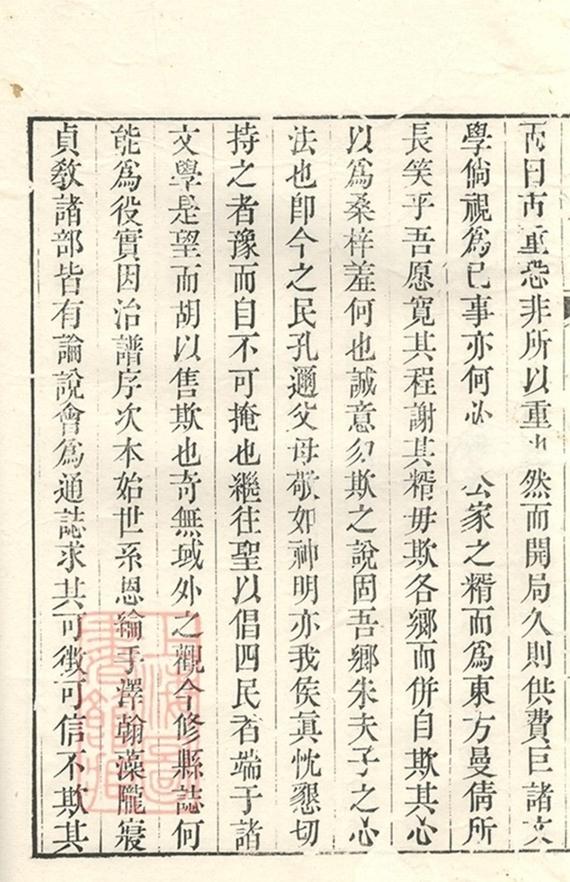 而曰古重恐非所以重也然而開局久則供費巨諸文
學倘視爲已事亦何必公家之糈而爲東方曼倩所
長笑乎吾愿寬其程謝其糈毋欺各鄉而併自欺其心
以爲桑梓羞何也誠意勿欺之說固吾鄉朱夫子之心
法也卽今之民孔邇父母敬如神明亦我侯眞忱懇切
持之者豫而自不可掩也繼往聖以倡四民者端于諸
文學是望而胡以售欺也奇無域外之觀今修縣誌何
能爲役實因治譜序次本始世系恩綸手澤翰藻隴寢
貞敎諸部皆有論說會爲通誌求其可徵可信不欺其